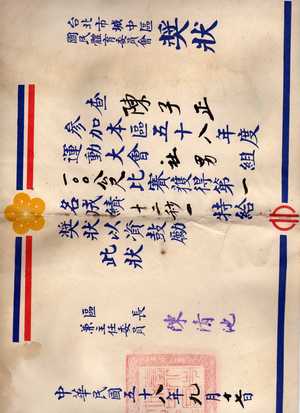 台北市城中區
國民體育委員會
獎狀
查 陳子正
參加本區五十八年度
運動大會 社男 組
一〇〇公尺比賽獲得第一
名成績十二秒一特給
獎狀以資鼓勵
此狀
區長
兼主任委員
陳清池
中華民國五十八年九月十七日